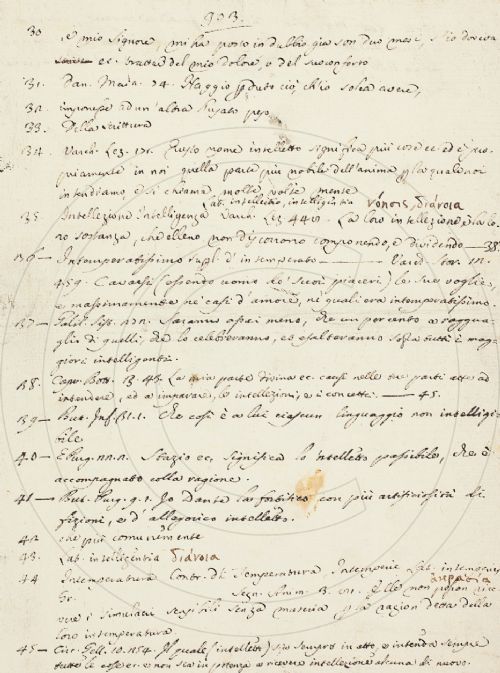 903.
30 e mio Signore, mi ha posto in dubbio già son due mesi, s'io doveva
ec. del mio dolore, o del suo conforto
31. Dan. Maia. 74. Maggio perduto ciò, ch'io solea avere,
32. impongo ad un' altra peso
33. Della scrittura
34. Varch. Lez. 176. Questo nome intelletto significa più cose ec. ed è pro-
priamente in noi quella parte più nobile dell'anima per la quale noi
intendiamo, e si chiama molte volte mente
Lat. intellectio, intelligentia νόησις, διάνοια
35 Intellezione Intelligenza Varch. Lez. 449. La loro intellezione è la lo-
ro sostanza, che elleno non discorrono componendo, e dividendo — 38
36 — Intemperatissimo superl. d' intemperato — Varch. Stor. 11.
459. Cavarsi (essendo uomo de' suoi piaceri) le sue voglie,
e massimamente ne' casi d'amore, ne' quali era intemperatissimo
37 — Galil. Sist. Saranno assai meno, che un per cento a raggua-
glio di quelli, che lo celebreranno, ed esalteranno sopra tutti i mag-
giori intelligenti.
38. Capr. Bott. 3. 43. La mia parte divina ec. causi nelle tue parti atte ad
intendere, ed a imparare, le intellezioni, e i concetti. — 45.
39 — But. Inf. 31. 1. Che così è a lui ciascun linguaggio non intelligi-
bile
40 — E Purg. Stazio ec. significa lo 'ntelletto possibile, che è
accompagnato colla ragione.
41 — But. Purg. 9. 1. Io Dante l'ho fortificato con più artificiosità di
fizioni, e d' allegorico intelletto.
42 che più comunemente
43. Lat. intelligentia διάνοια
44 Intemperatura Contr. di Temperatura Intemperie Lat. intemperies
Gr. ἀκρασία
Segn. Anim. 3. Elle non possono rice-
vere i simulacri sensibili senza materia, per la cagion detta della
loro intemperatura
45 — Circ. Gell. 10. 254. Il quale (intelletto) sia sempre in atto, e intenda sempre
tutte le cose ec. e non sia in potenza a ricevere intellezione alcuna di nuovo.